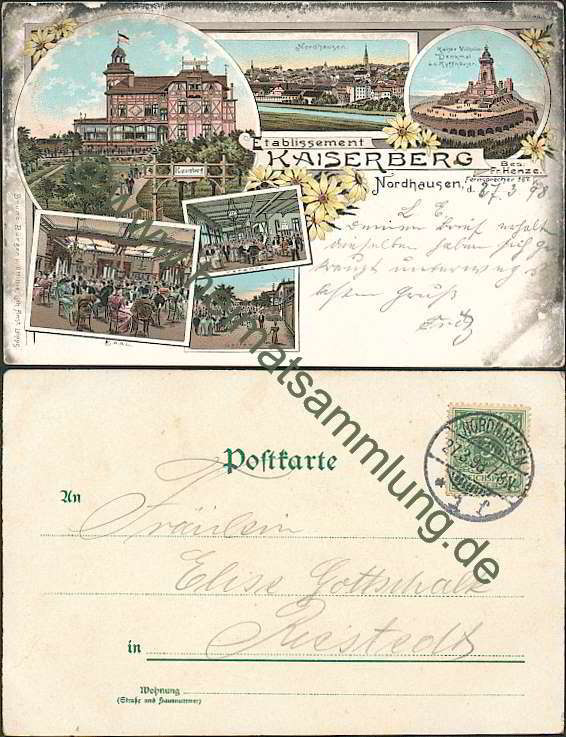 Nordhausen.
Kaiser Wilhelm
Denkmal
a.d. Kyffhäuser.
Etablissement
KAISERBERG
Bes.
Fr. Henze.
Fernsprecher
Nordhausen, d. 27.3.98
Kaiserberg
L. E.
Deinen Brief erhalten
dieselben haben sich ge
kreuzt unterwegs
Gruß
Fritz
SAAL
www.heimatsammlung.de
Postkarte
NORDHAUSEN
27.3.98
* 1 f
An
Fräulein
Elise Gottschalk
in Riestedt
Wohnung
(Straße und Hausnummer)